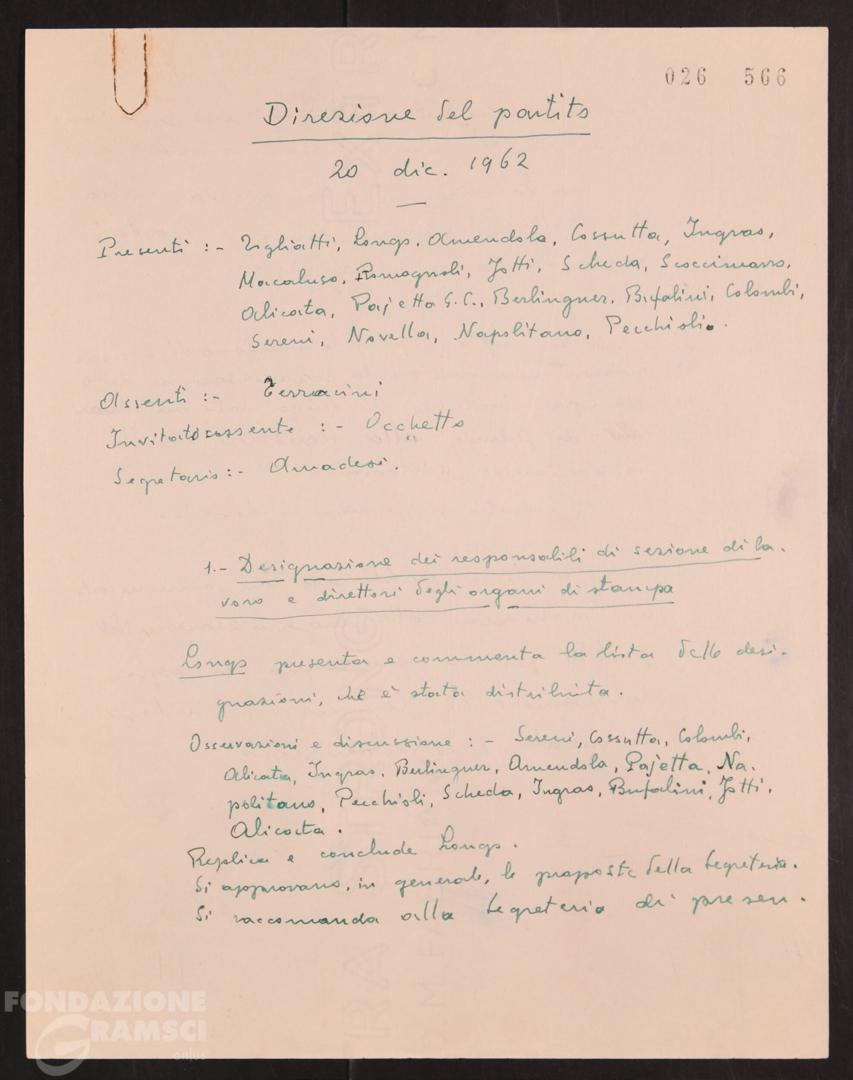 026 566
Direzione del partito
20 dic. 1962
Presenti :- Togliatti, Longo, Amendola, Cossutta, Ingrao,
Macaluso, Romagnoli, Jotti, Scheda, Scoccimarro,
Alicata, Pajetta G.C., Berlinguer, Bufalini, Colombi,
Sereni, Novella, Napolitano, Pecchioli.
Assenti :- Terracini
Invitato assente :- Occhetto
Segretario :- Amadesi.
1.- Designazione dei responsabili di sezione di la-
voro e direttori degli organi di stampa
Longo presenta e commenta la lista delle desi-
gnazioni, che è stata distribuita.
Osservazioni e discussione :- Sereni, Cossutta, Colombi,
Alicata, Ingrao, Berlinguer, Amendola, Pajetta, Na-
politano, Pecchioli, Scheda, Ingrao, Bufalini, Jotti,
Alicata.
Replica e conclude Longo.
Si approvano, in generale, le proposte della Segreteria.
Si raccomanda alla Segreteria di presen-
FONDAZIONE
GRAMSCI
onlus